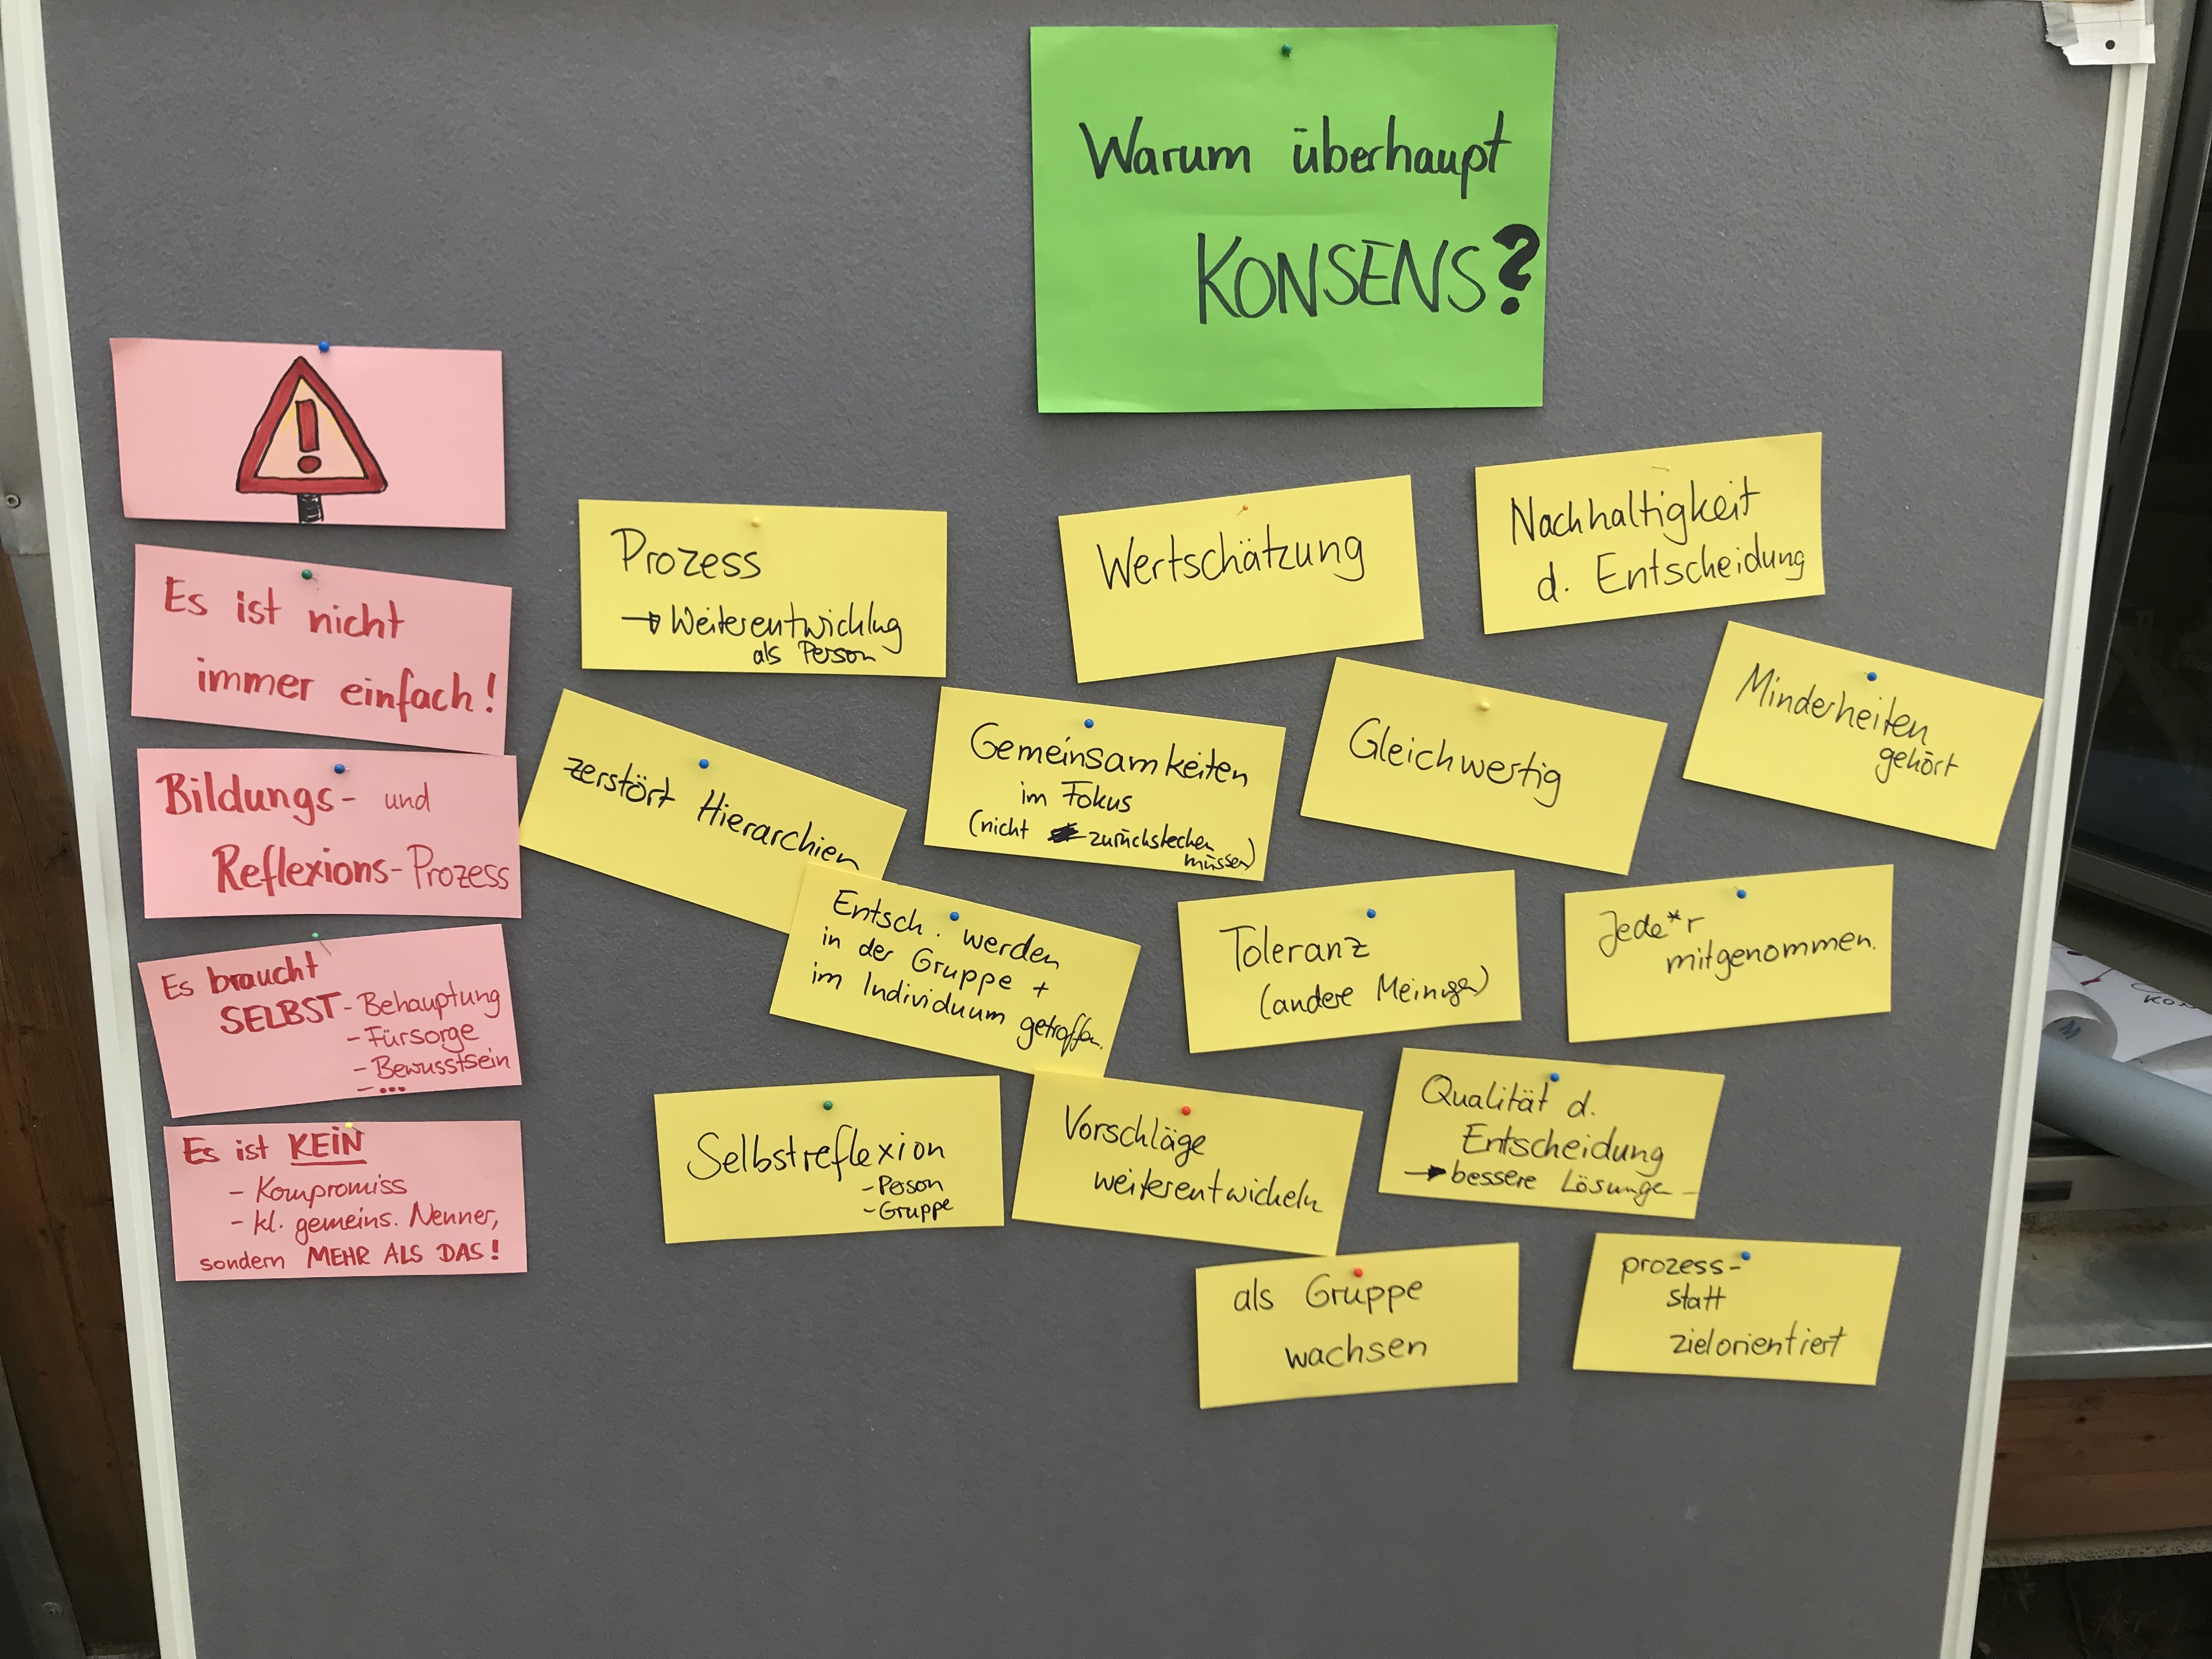 Warum überhaupt
KONSENS?
!
Es ist nicht
immer einfach!
Bildungs- und
Reflexions-Prozess
Es braucht
SELBST-Behauptung
-Fürsorge
-Bewusstsein
-...
Es ist KEIN
- Kompromiss
- kl. gemeins. Nenner,
sondern MEHR ALS DAS!
Prozess
→ Weiterentwicklng
als Person
Wertschätzung
Nachhaltigkeit
d. Entscheidung
zerstört Hierarchien
Gemeinsamkeiten
im Fokus
(nicht zurückstecken
müssen)
Gleichwertig
Minderheiten
gehört
Entsch. werden
in der Gruppe +
im Individuum getroffen.
Toleranz
(andere Meinungen)
Jede*r
mitgenommen.
Selbstreflexion
-Person
-Gruppe
Vorschläge
weiterentwickeln
Qualität d.
Entscheidung
→ bessere Lösungen
als Gruppe
wachsen
prozess-
statt
zielorientiert